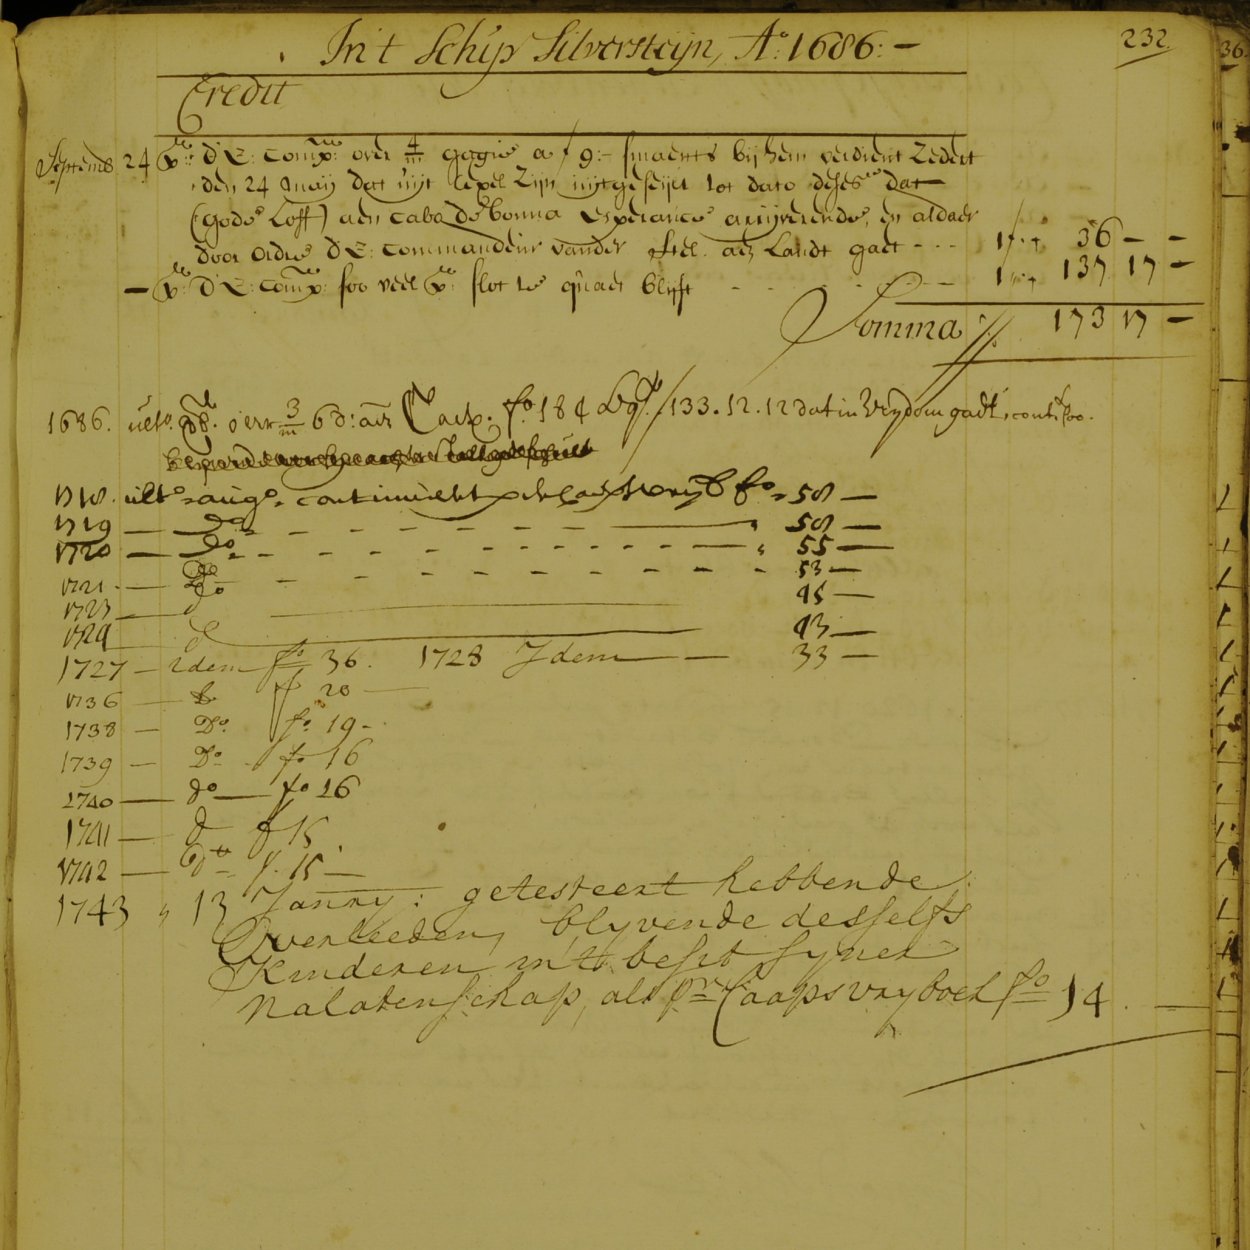 232
In't Schip Silversteijn, Aº: 1686: —
Credit
Septemb 24 Pr: d'E: Comp: over 4/m gagie a ƒ 9:- smaents bij hem verdient zedert
den 24 Maij dat uijt texel zijn uijtgeseijlt tot dato deses dat
(godt Loff) aen Cabo de bonna Esperance arrijverende, en aldaer
door ordre d'E: Commandeur vander Stel aen Landt gaet - - - 36 — —
— Pr: D'E: Comp: soo veel Pr: slot te quaet blijft - - - - 137 17 —
Somma 173 17 —
1686. ulto. over 3/m 6 d: aen fo. 184 / 133. 12. 12 dat in vrydom gaet, conti
1718. ulto. augo. continueert fo. 58 —
1719 — do - - - - 58 —
1720 — do - - - - 55 —
1721 — do - - - - 53 —
1723 — do 45 —
1724 d 43 —
1727 — idem fo 36. 1728 Idem — 33 —
1736 — fo 20 —
1738 — Do. fo. 19 -
1739 — Do fo 16
1740 — do — fo 16
1741 — d f 15
1742 — do f. 15 —
1743 " 13 Janry: getesteert hebbende
Overleeden, blyvende desselfs
Kinderen in't besit syner
Nalatenschap, als pr Caaps vryboek fo 14